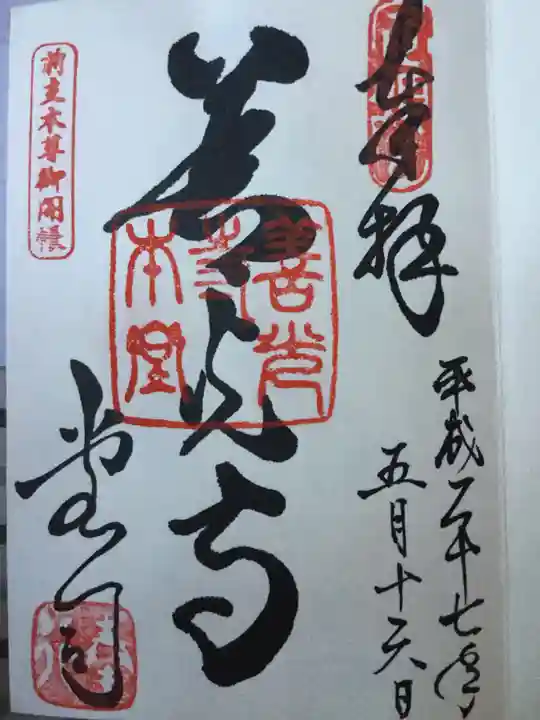 奉拝
平成二十七年
五月十六日
善光寺
善光寺本堂
堂司
前立本尊御開帳